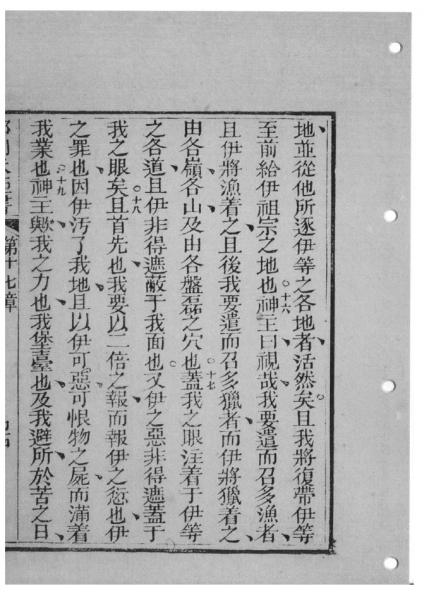 地並從他所逐伊等之各地者活然矣且我將復帶伊等
至前給伊祖宗之地也○十六神主曰視哉我要遣而召多漁者
且伊將漁着之且後我要遣而召多獵者而伊將獵着之
由各嶺各山及由各盤磊之穴也○十七蓋我之眼注着于伊等
之各道且伊非得遮蔽于我面也又伊之惡非得遮蓋于
我之眼矣○十八且首先也我要以二倍之報而報伊之愆也伊
之罪也因伊污了我地且以伊可惡可恨物之屍而滿着
我業也○十九神主歟我之力也我堡臺也及我避所於苦之日
第十七章